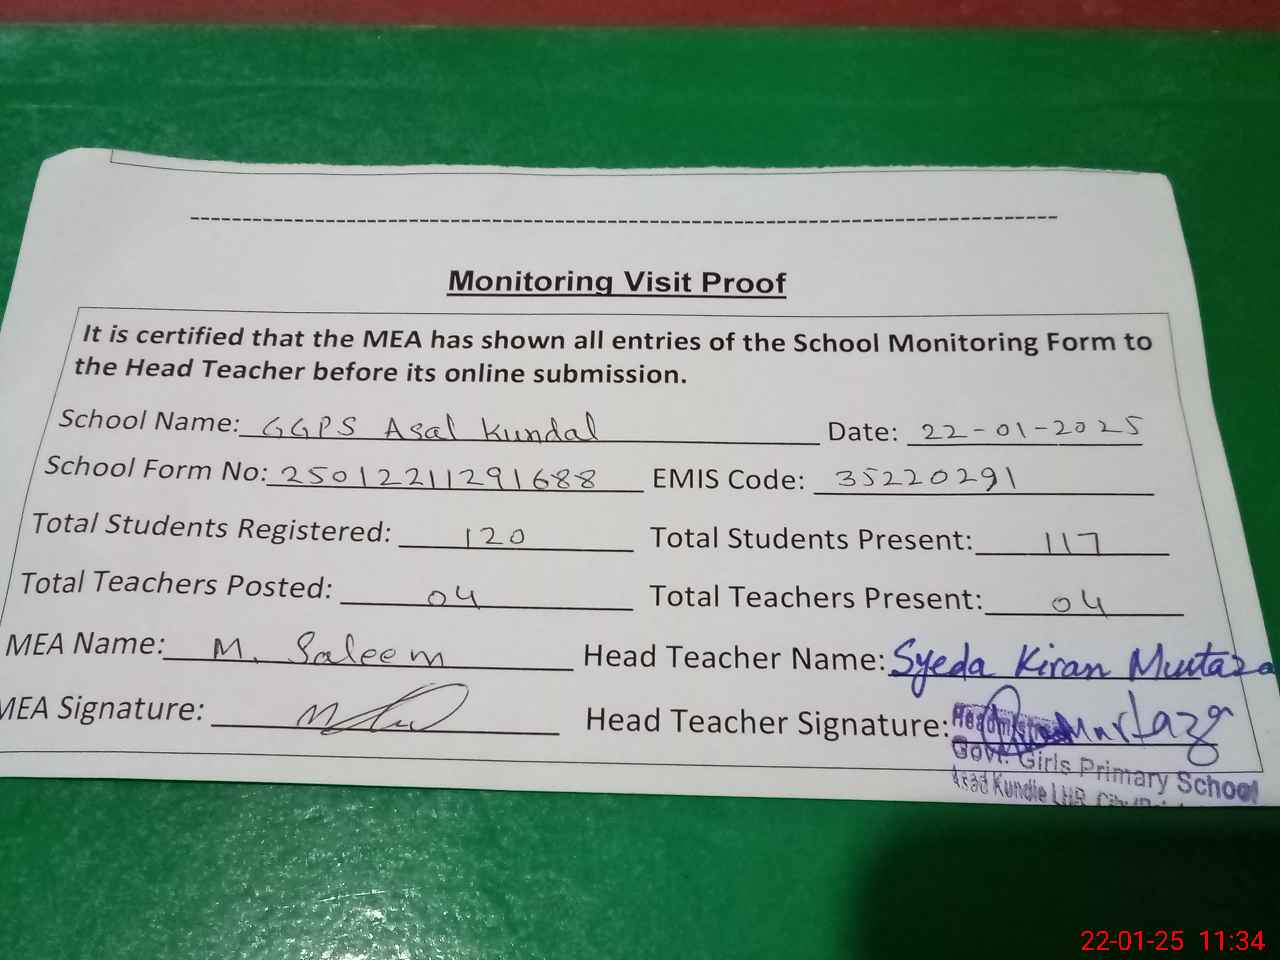 Monitoring Visit Proof
It is certified that the MEA has shown all entries of the School Monitoring Form to
the Head Teacher before its online submission.
School Name: GGPS Asal Kundal Date: 22-01-2025
School Form No: 25012211291688 EMIS Code: 35220291
Total Students Registered: 120 Total Students Present: 117
Total Teachers Posted: 04 Total Teachers Present: 04
MEA Name: M. Saleem Head Teacher Name: Syeda Kiran Murtaza
MEA Signature: Head Teacher Signature: Murtaza
Govt. Girls Primary School
Asad Kundle LHR.
22-01-25 11:34